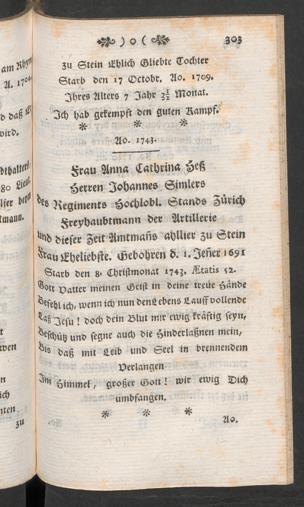 ) o ( 303
zu Stein Ehlich Gliebte Tochter
Starb den 17 Octobr. Ao. 1709.
Ihres Alters 7 Jahr 3½ Monat.
Ich hab gekempft den guten Kampf.
* * *
Ao. 1743.
Frau Anna Cathrina Heß
Herren Johannes Simlers
des Regiments Hochlobl. Stands Zürich
Freyhaubtmann der Artillerie
und dieser Zeit Amtmans ahllier zu Stein
Frau Eheliebste. Gebohren d. 1. Jener 1691
Starb den 8. Christmonat 1743. Ætatis 52.
Gott Vatter meinen Geist in deine treue Hände
Befehl ich, wenn ich nun den Lebens Lauff vollende
Laß Jesu! doch dein Blut mir ewig kräftig seyn,
Beschütz und segne auch die Hinderlaßnen mein,
Bis daß mit Leib und Seel in brennendem
Verlangen
Im Himmel, großer Gott! wir ewig Dich
umbfangen.
* * *
Ao.
am Rhyn
wird.
80
tmann.
wen
n
ich
nten
zu